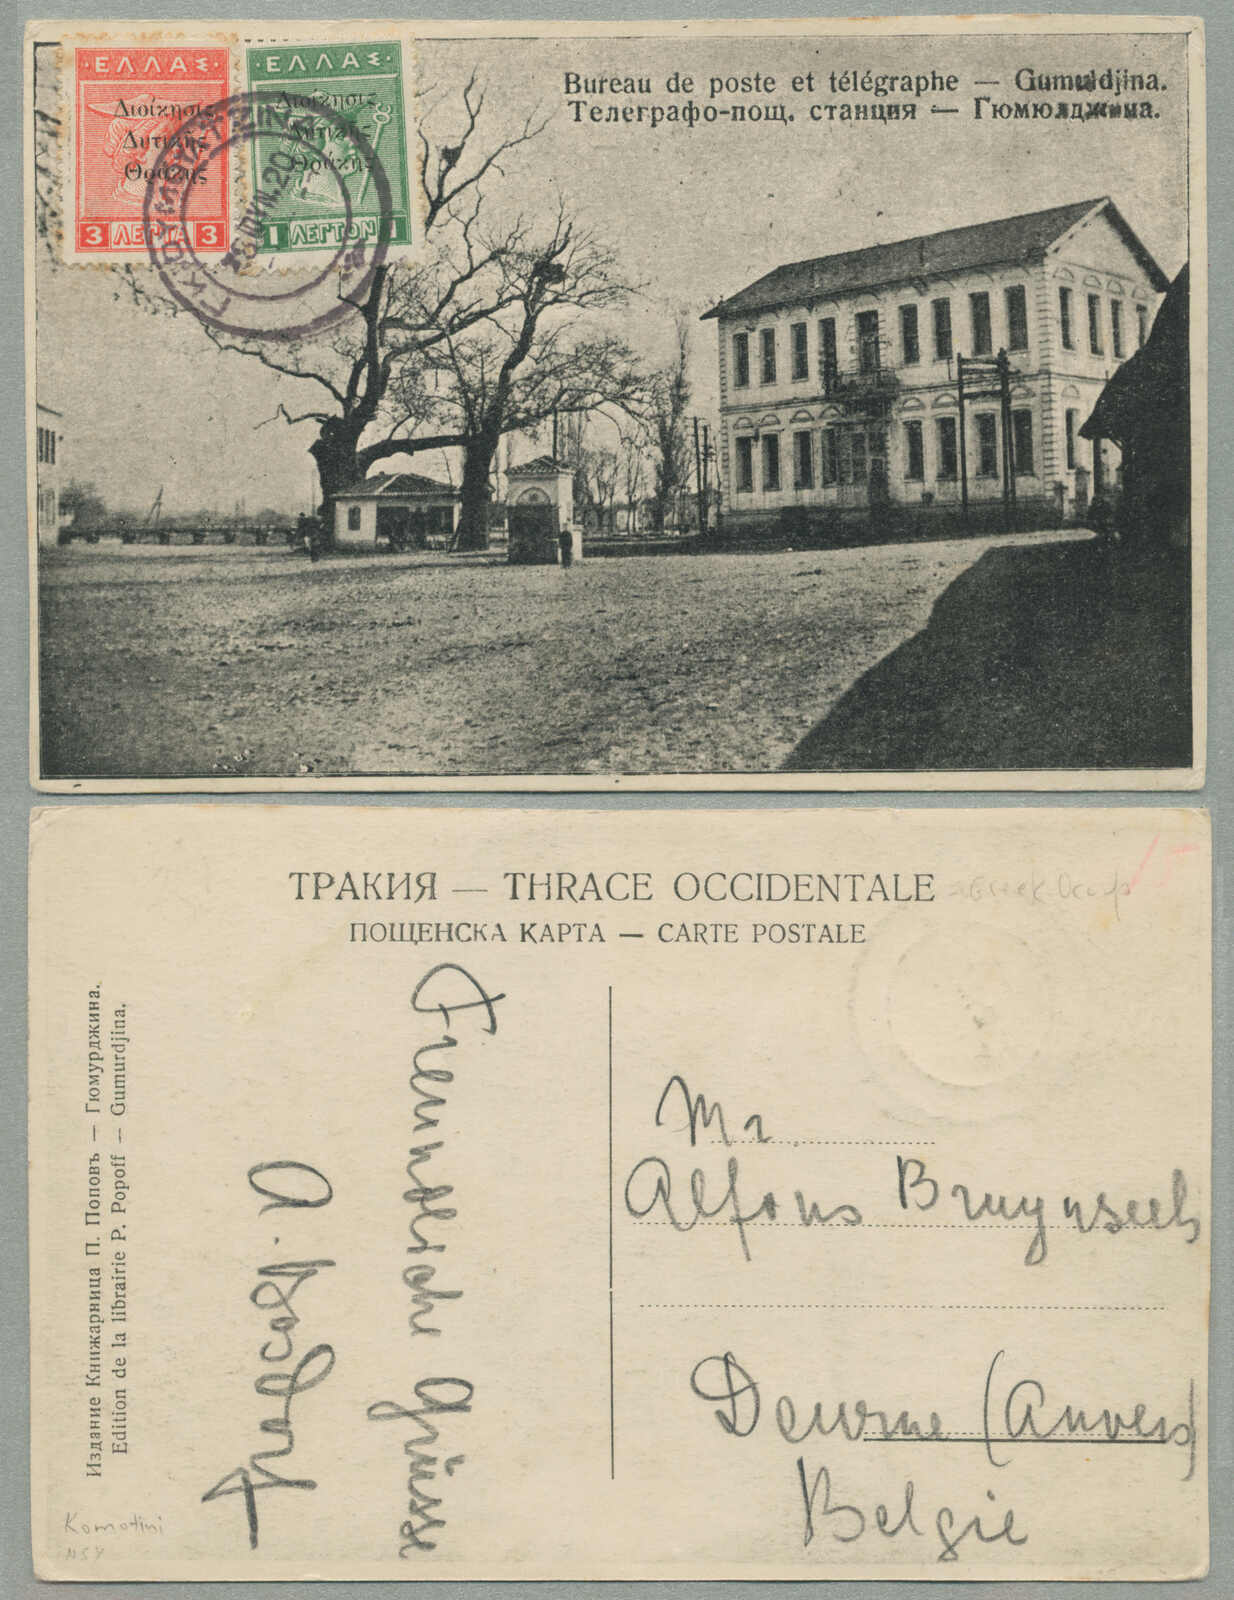 ΕΛΛΑΣ
Διοίκησις
Δυτικῆς
Θράκης
3 ΛΕΠΤΑ 3
ΕΛΛΑΣ
Διοίκησις
Δυτικῆς
Θράκης
1 ΛΕΠΤΟΝ 1
ΓΚΙΟΥΜΟΥΛΤΖΙΝΑ
ΙΟΥΝ.20
Bureau de poste et télégraphe — Gumuldjina.
Телеграфо-пощ. станция — Гюмюлджина.
ТРАКИЯ — THRACE OCCIDENTALE
Greek Occup
15
ПОЩЕНСКА КАРТА — CARTE POSTALE
Издание Книжарница П. Поповъ — Гюмурджина.
Edition de la librairie P. Popoff — Gumurdjina.
Freundliche Grüsse
A.
Mr
Alfons Bruynseels
Deurne (Anvers)
Belgie
Komotini